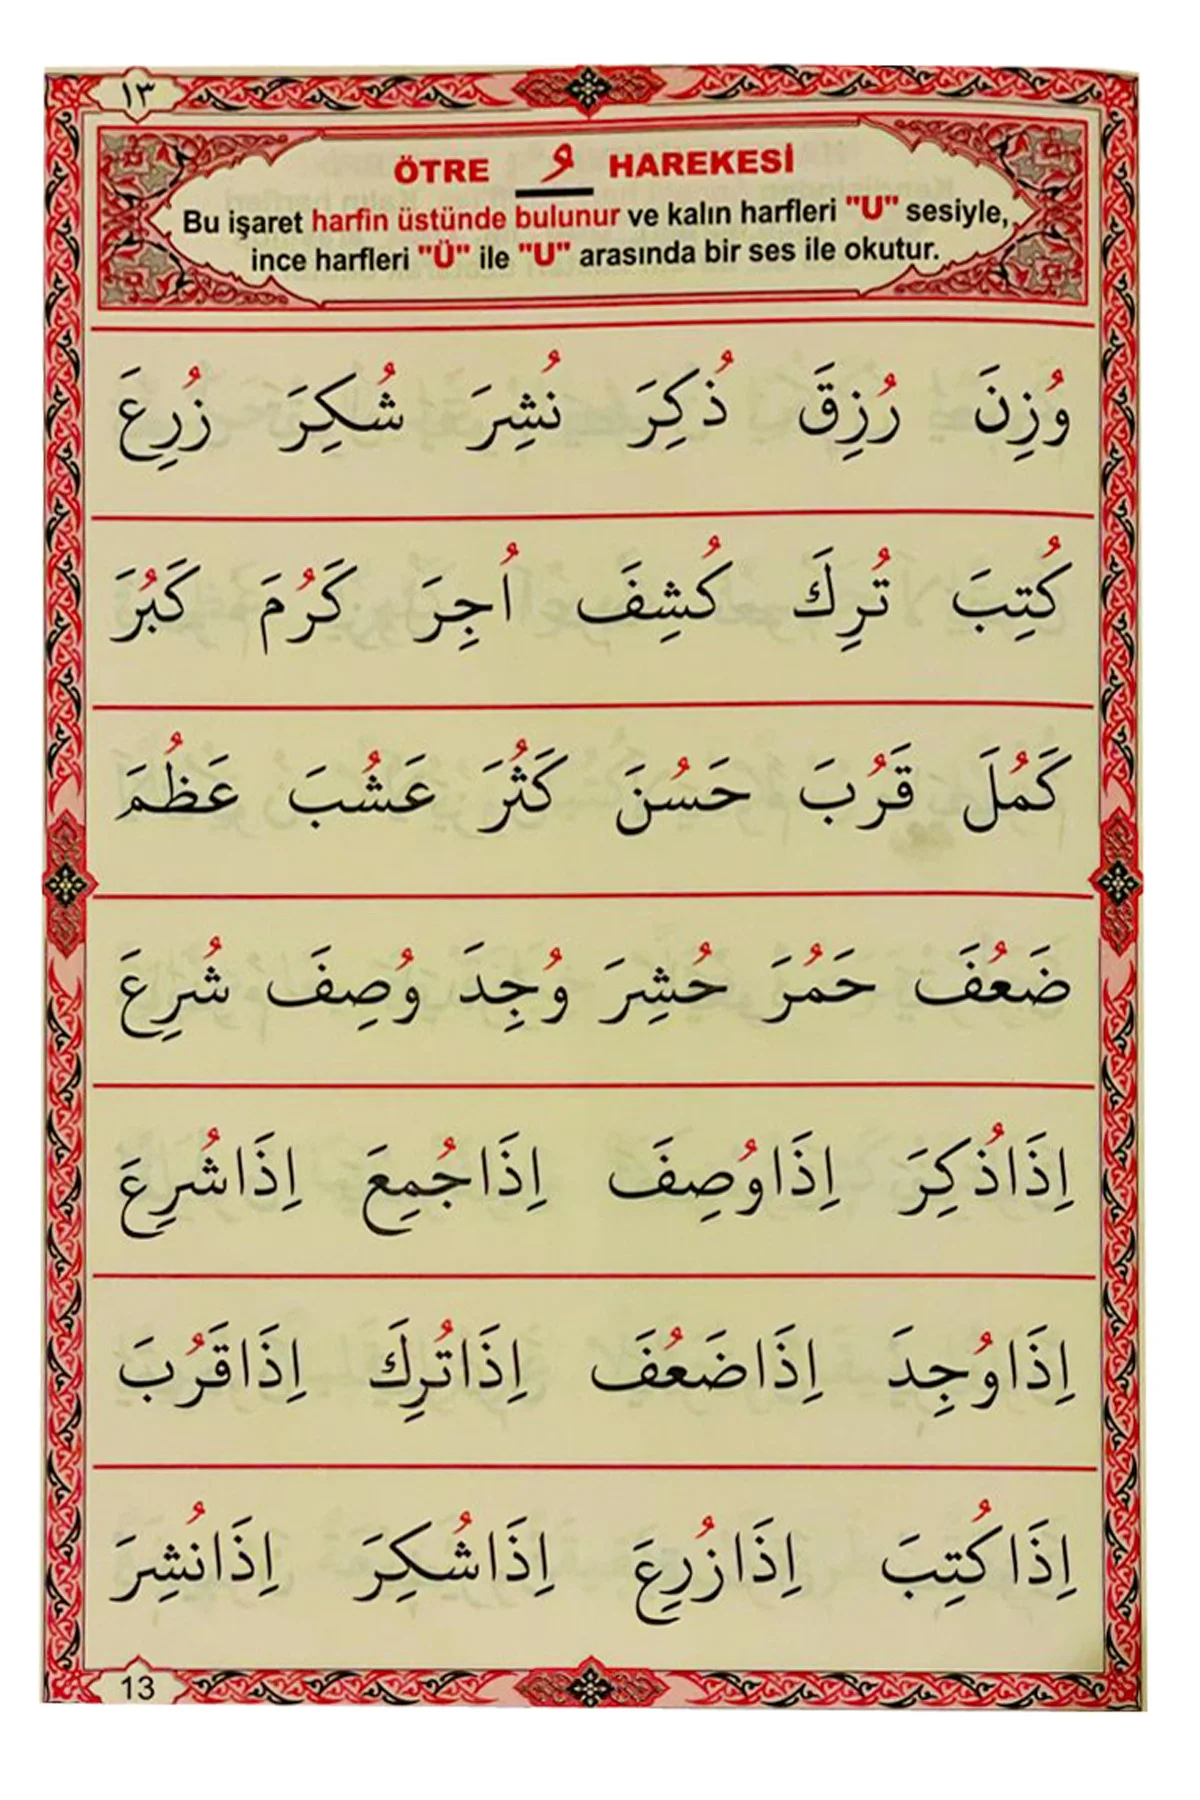 ١٣
ÖTRE ـُ HAREKESİ
Bu işaret harfin üstünde bulunur ve kalın harfleri "U" sesiyle,
ince harfleri "Ü" ile "U" arasında bir ses ile okutur.
وُزِنَ رُزِقَ ذُكِرَ نُشِرَ شُكِرَ زُرِعَ
كُتِبَ تُرِكَ كُشِفَ اُجِرَ كَرُمَ كَبُرَ
كَمُلَ قَرُبَ حَسُنَ كَثُرَ عَشُبَ عَظُمَ
ضَعُفَ حَمُرَ حُشِرَ وُجِدَ وُصِفَ شُرِعَ
اِذَا ذُكِرَ اِذَا وُصِفَ اِذَا جُمِعَ اِذَا شُرِعَ
اِذَا وُجِدَ اِذَا ضَعُفَ اِذَا تُرِكَ اِذَا قَرُبَ
اِذَا كُتِبَ اِذَا زُرِعَ اِذَا شُكِرَ اِذَا نُشِرَ
13